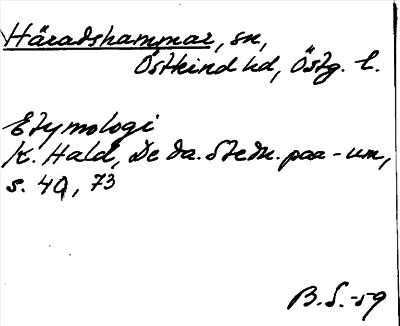 Häradshammar, sn,
Östkind hd, Östg. l.
Etymologi
K. Hald, De da. Stedn. paa -um,
s. 49, 73
B.S. -59